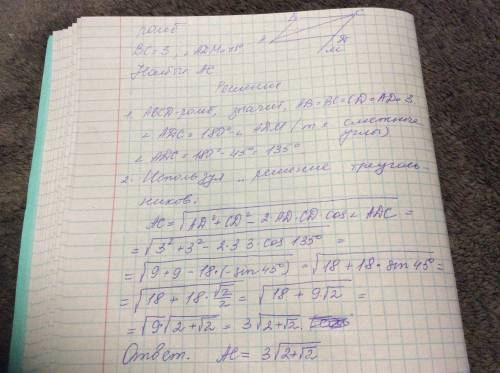 ромб
BC=3, ∠ADM=45°
Найти AC
B C
A D
M
Решение
1. ABCD-ромб, значит, AB=BC=CD=AD=3,
∠ADC = 180° - ∠ADM (т.к смежные
углы)
∠ADC = 180° - 45° = 135°
2. Используя .. решение треуголь-
ников.
AC = √(AD² + CD² - 2·AD·CD·cos∠ADC) =
= √(3² + 3² - 2·3·3·cos 135°) =
= √(9 + 9 - 18·(-sin 45°)) = √(18 + 18·sin 45°) =
= √(18 + 18·√2/2) = √(18 + 9√2) =
= √9·√(2+√2) = 3√(2+√2).
Ответ. AC = 3√(2+√2)